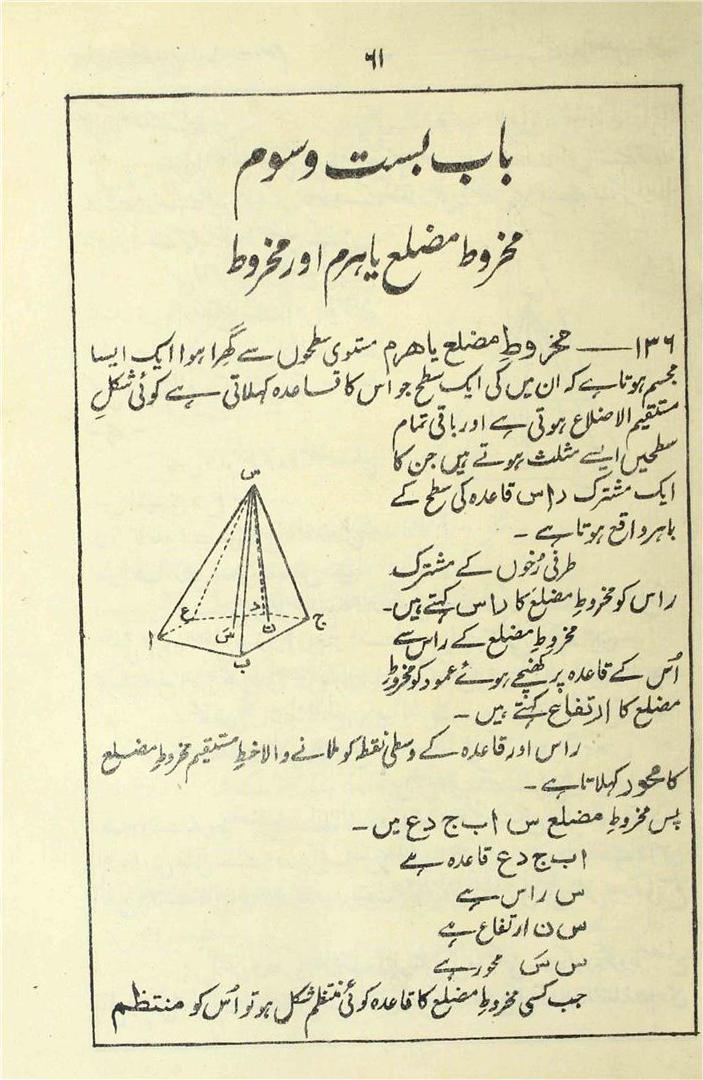 ۶۱
باب بست و سوم
مخروط مضلع یا ہرم اور مخروط
۱۳۶ — مخروطِ مضلع یا ہرم مستوی سطحوں سے گھرا ہوا ایک ایسا
مجسم ہوتا ہے کہ ان میں کی ایک سطح جو اس کا قاعدہ کہلاتی ہے کوئی شکلِ
مستقیم الاضلاع ہوتی ہے اور باقی تمام
سطحیں ایسے مثلث ہوتے ہیں جن کا
ایک مشترک راس قاعدہ کی سطح کے
باہر واقع ہوتا ہے ۔
طرفی رُخوں کے مشترک
راس کو مخروطِ مضلع کا راس کہتے ہیں۔
مخروطِ مضلع کے راس سے
اُس کے قاعدہ پر کھنچے ہوئے عمود کو مخروطِ
مضلع کا ارتفاع کہتے ہیں ۔
راس اور قاعدہ کے وسطی نقطہ کو ملانے والا خطِ مستقیم مخروطِ مضلع
کا محور کہلاتا ہے ۔
پس مخروطِ مضلع س ا ب ج د ع میں ۔
ا ب ج د ع قاعدہ ہے
س راس ہے
س ن ارتفاع ہے
س سَ محور ہے
جب کسی مخروطِ مضلع کا قاعدہ کوئی منتظم شکل ہو تو اُس کو منتظم
س
ع
د
ج
ا
سَ
ن
ب